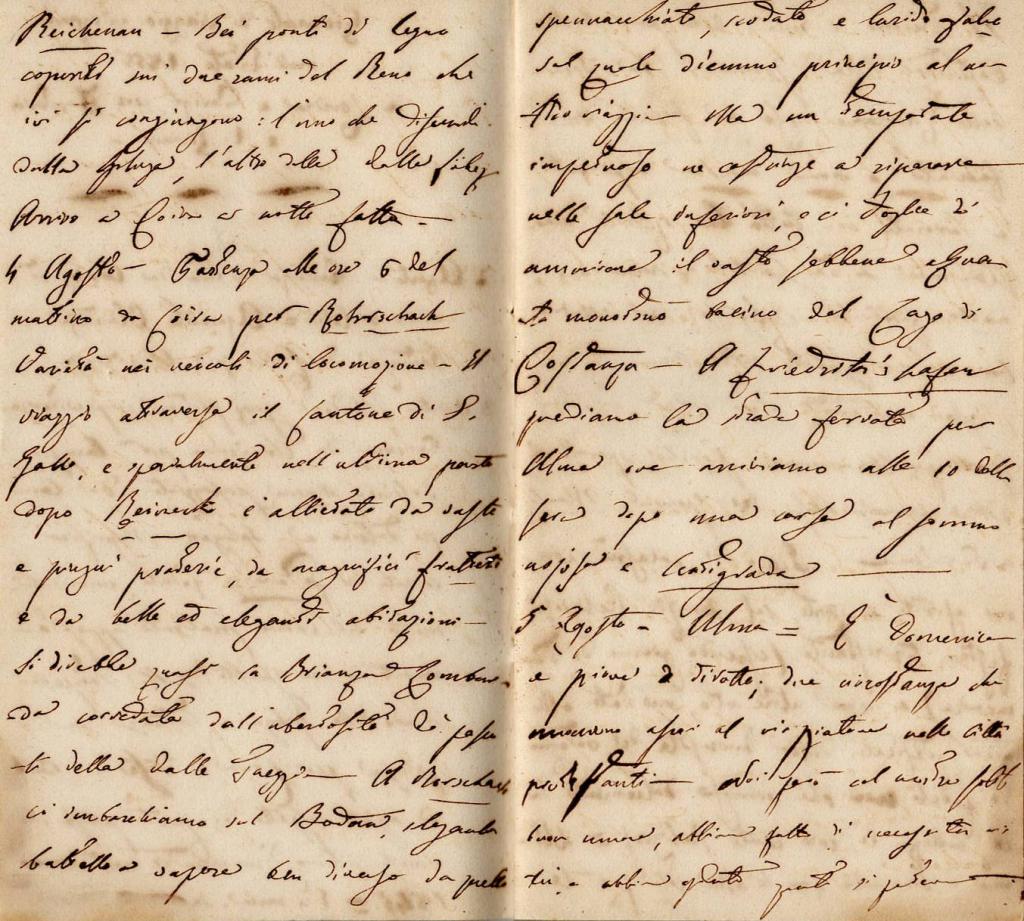 Reichenau – Bei ponti di legno
coperti sui due rami del Reno che
ivi si congiungono: l'uno che discende
dalla Spluga, l'altro dalla valle
Arrivo a Coira a notte fatta –
4 Agosto – Partenza alle ore 6 del
mattino da Coira per Rohrschach
Varietà nei veicoli di locomozione – Il
viaggio attraverso il Cantone di S.
Gallo, e specialmente nell'ultima parte
dopo Reineck è allietato da vaste
e pingui praterie, da magnifici frutteti
e da belle ed eleganti abitazioni –
Si direbbe quasi la Brianza Lombar-
da corredata dall'ubertosità de' pasco-
li della Valle – A Rorschach
ci imbarchiamo sul Bodan, elegante
battello a vapore ben diverso da quello
spennacchiato, scodato e lurido
sul quale diemmo principio al no-
stro viaggio – Ma un temporale
impetuoso ne costringe a riparare
nelle sale inferiori, e ci toglie di
ammirare il vasto sebbene alquan-
to monotono bacino del Lago di
Costanza – A Friedrichshafen
prendiamo la strada ferrata per
Ulma ove arriviamo alle 10 della
sera dopo una corsa al sommo
nojosa e
5 Agosto – Ulma = È Domenica
e piove a dirotto; due circostanze che
nuocciono assai al viaggiatore nelle città
protestanti – Noi però col nostro
buon umore, abbiam fatto di necessità vir-
tù, e abbiam